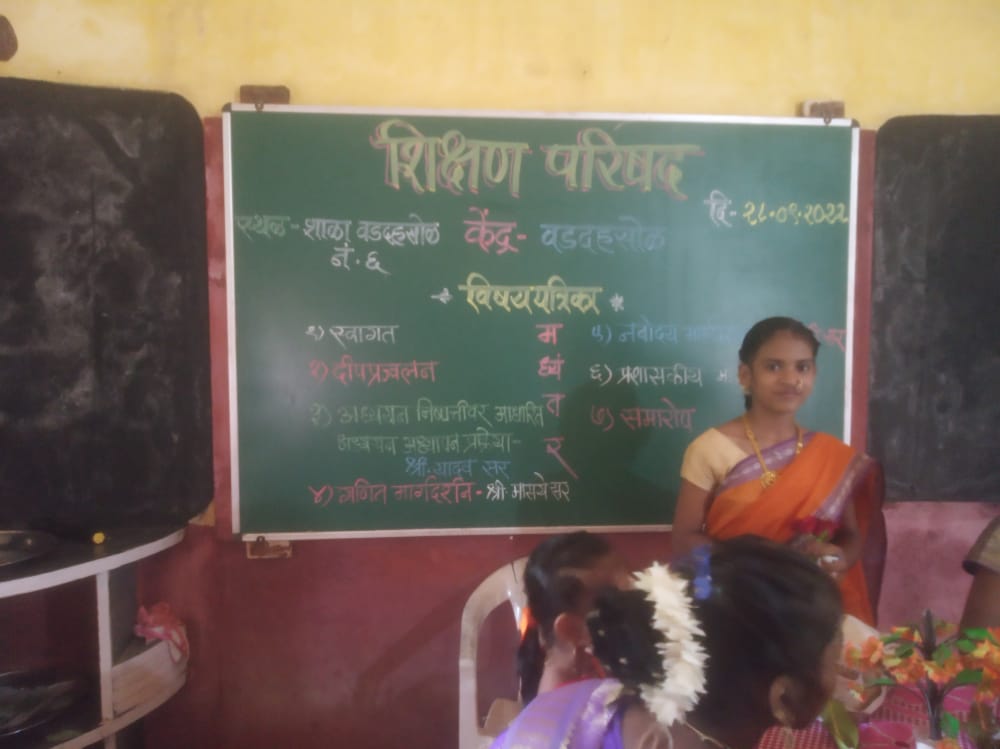 शिक्षण परिषद
दि - २८.०९.२०२२
स्थळ - शाळा वडदहसोळ केंद्र - वडदहसोळ
नं. ६
विषयपत्रिका
१) स्वागत
२) दीपप्रज्वलन
३) अध्ययन निष्पत्तीवर आधारित
अध्ययन अध्यापन प्रक्रिया -
श्री. यादव सर
४) गणित मार्गदर्शन - श्री. मासये सर
म
ध्यं
त
र
५) नवोदय
६) प्रशासकीय
७) समारोप